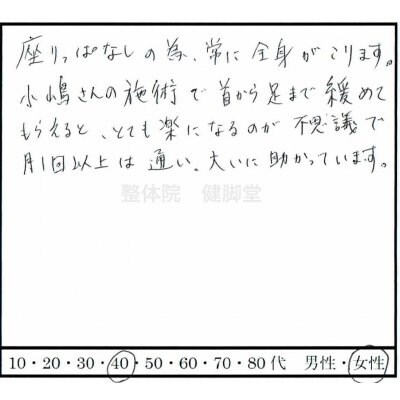 座りっぱなしの為、常に全身がこります。
小嶋さんの施術で首から足まで緩めて
もらえると、とても楽になるのが不思議で
月1回以上は通い、大いに助かっています。
整体院 健脚堂
10・20・30・40・50・60・70・80代 男性・女性